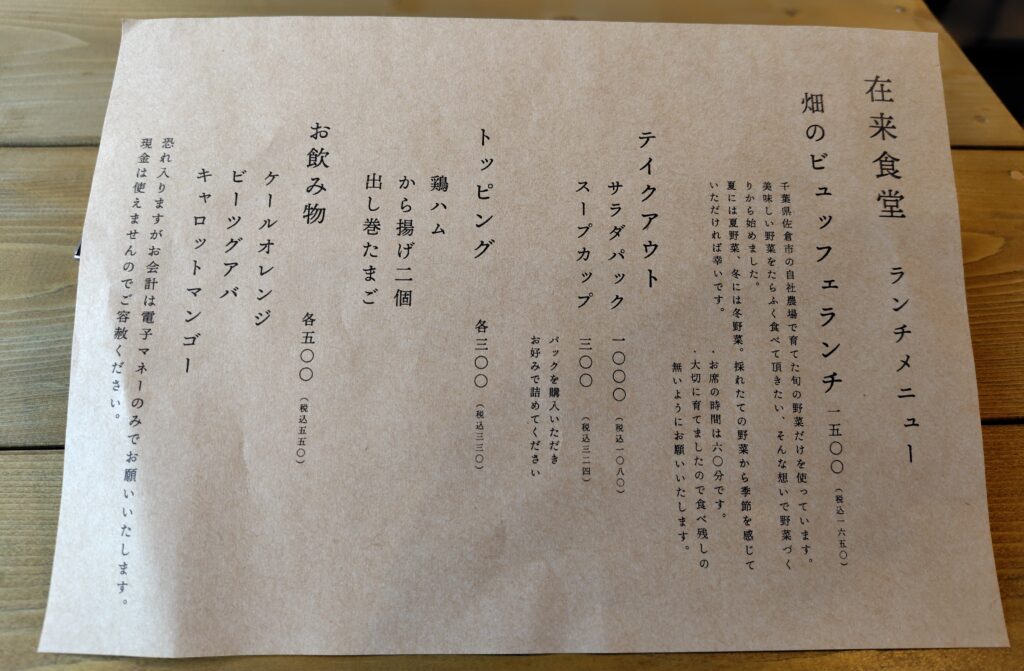 在来食堂 ランチメニュー
畑のビュッフェランチ 一五〇〇（税込一六五〇）
千葉県佐倉市の自社農場で育てた旬の野菜だけを使っています。
美味しい野菜をたらふく食べて頂きたい、そんな想いで野菜づく
りから始めました。
夏には夏野菜、冬には冬野菜。採れたての野菜から季節を感じて
いただければ幸いです。
・お席の時間は六〇分です。
・大切に育てましたので食べ残しの
無いようにお願いいたします。
テイクアウト
サラダパック 一〇〇〇（税込一〇八〇）
スープカップ 三〇〇（税込三二四）
パックを購入いただき
お好みで詰めてください
トッピング 各三〇〇（税込三三〇）
鶏ハム
から揚げ二個
出し巻たまご
お飲み物 各五〇〇（税込五五〇）
ケールオレンジ
ビーツグアバ
キャロットマンゴー
恐れ入りますがお会計は電子マネーのみでお願いいたします。
現金は使えませんのでご容赦ください。